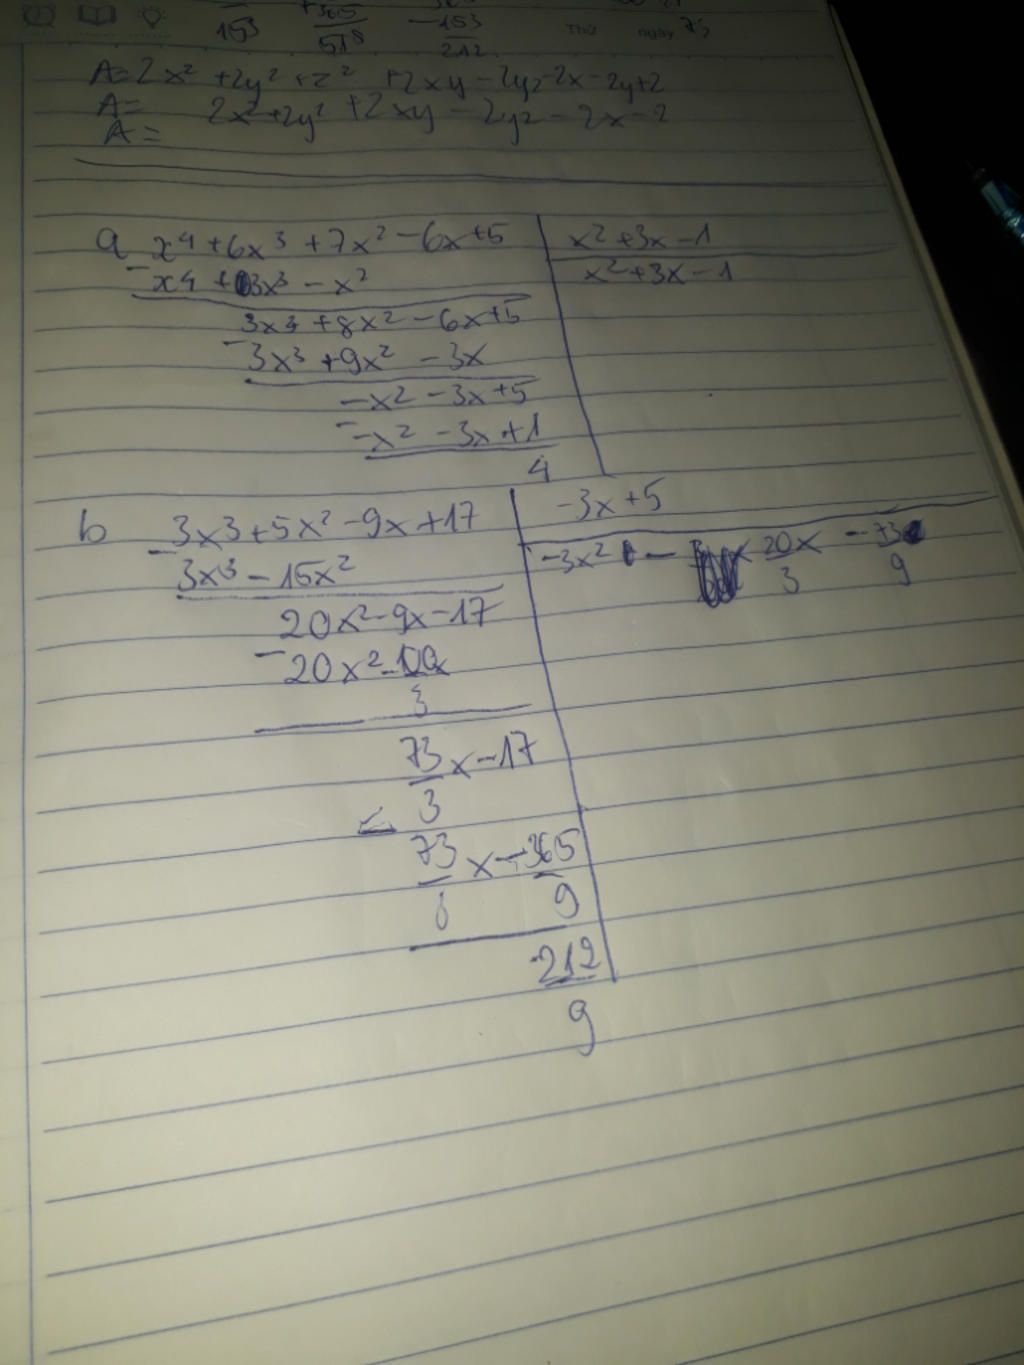 153 +365 -153
518 212 Thứ ngày 73
A=2x² +2y² +z² +2xy-2yz-2x-2y+2
A= 2x²+2y² +2xy - 2yz - 2x-2
A=
a x⁴+6x³+7x²-6x+5 x²+3x-1
- x⁴+3x³-x² x²+3x-1
3x³+8x²-6x+5
- 3x³+9x²-3x
-x²-3x+5
- -x²-3x+1
4
b 3x³+5x²-9x+17 -3x+5
- 3x³-15x² -3x² - 20x/3 -73/9
20x²-9x-17
- 20x²-100x/3
73/3 x-17
- 73/ x-365/9
-212/9